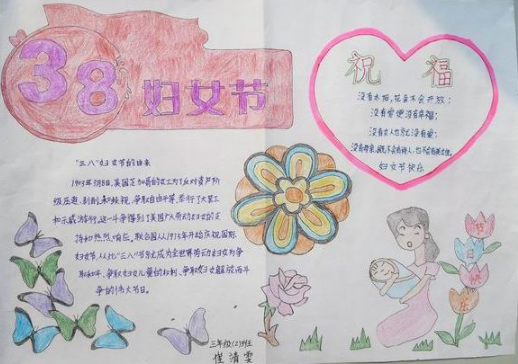 38妇女节
"三八"妇女节的由来
1909年3月8日,美国芝加哥的女工为了反对资产阶
级压迫、剥削和歧视,争取自由平等,举行了大罢工
和示威游行,这一斗争得到了美国广大劳动妇女的支
持和热烈响应,联合国从1975年开始庆祝国际
妇女节,从此"三八"节就成为全世界劳动妇女为争
取和平、争取妇女儿童的权利、争取妇女解放而斗
争的伟大节日。
祝福
没有太阳,花朵不会开放;
没有爱便没有幸福;
没有女人也就没有爱;
没有母亲,既不会有诗人,也不会有英雄。
妇女节快乐
节日快乐
三年级(2)班
崔清雯